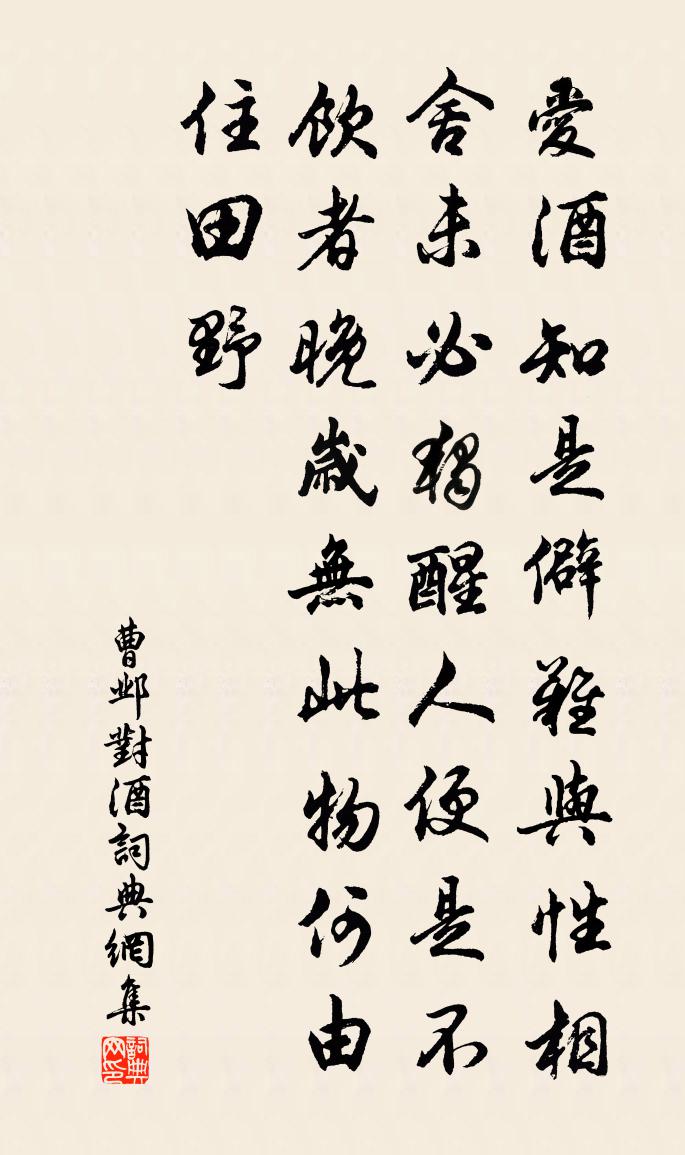 愛酒知是僻難與性相
舍未必獨醒人便是不
飲者晚歲無此物何由
住田野
曹鄴對酒詞典網集
詞典网印